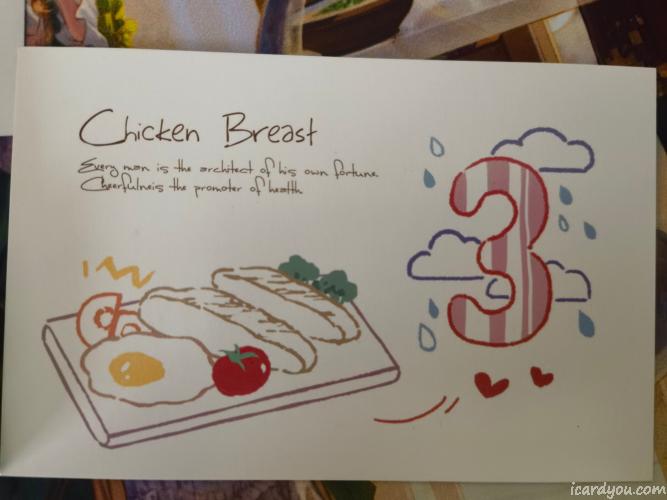 Chicken Breast
Every man is the architect of his own fortune.
Cheerfulneis the promoter of health
3
icardyou.com